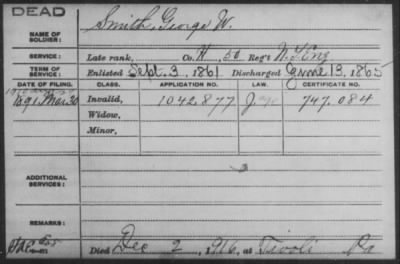 DEAD
Smith, George W.
NAME OF SOLDIER:
SERVICE: Late rank, Co. H, 50 Reg't N.Y. Eng
TERM OF SERVICE: Enlisted Sept. 3, 1861 Discharged June 13, 1865
DATE OF FILING. CLASS. APPLICATION NO. LAW. CERTIFICATE NO.
1891 Mar. 30 Invalid, 1042.877 747.084
Widow,
Minor,
ADDITIONAL SERVICES:
REMARKS:
Died Dec 2, 1916, at Tivoli Pa